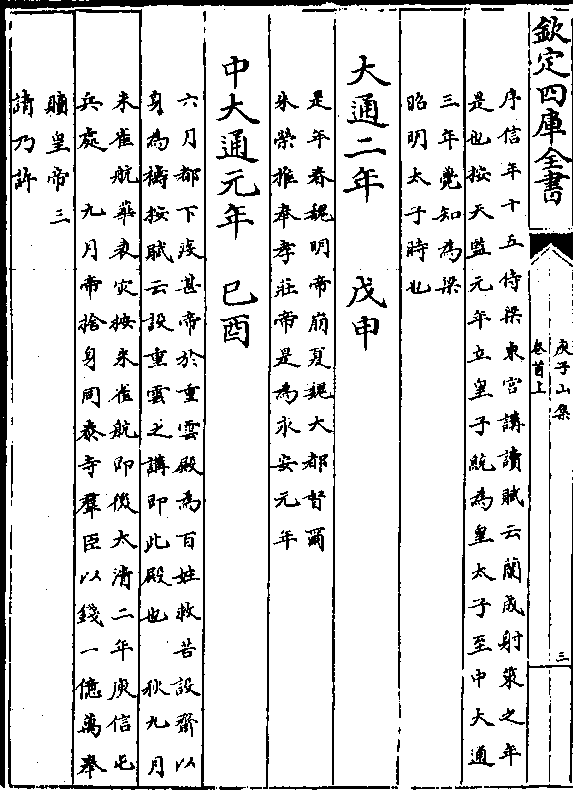 欽定四庫全書
庾子山集
卷首上
三
序信年十五侍梁東宮講讀賦云蘭成射策之年
是也按天監元年立皇子統為皇太子至中大通
三年薨知為梁
昭明太子時也
大通二年 戊申
是年春魏明帝崩夏魏大都督爾
朱榮推奉孝莊帝是為永安元年
中大通元年 己酉
六月都下疫甚帝於重雲殿為百姓救苦設齋以
身為禱按賦云設重雲之講即此殿也 秋九月
朱雀航華表灾按朱雀航即後太清二年庾信屯
兵處 九月帝捨身同泰寺羣臣以錢一億萬奉
贖皇帝三
請乃許